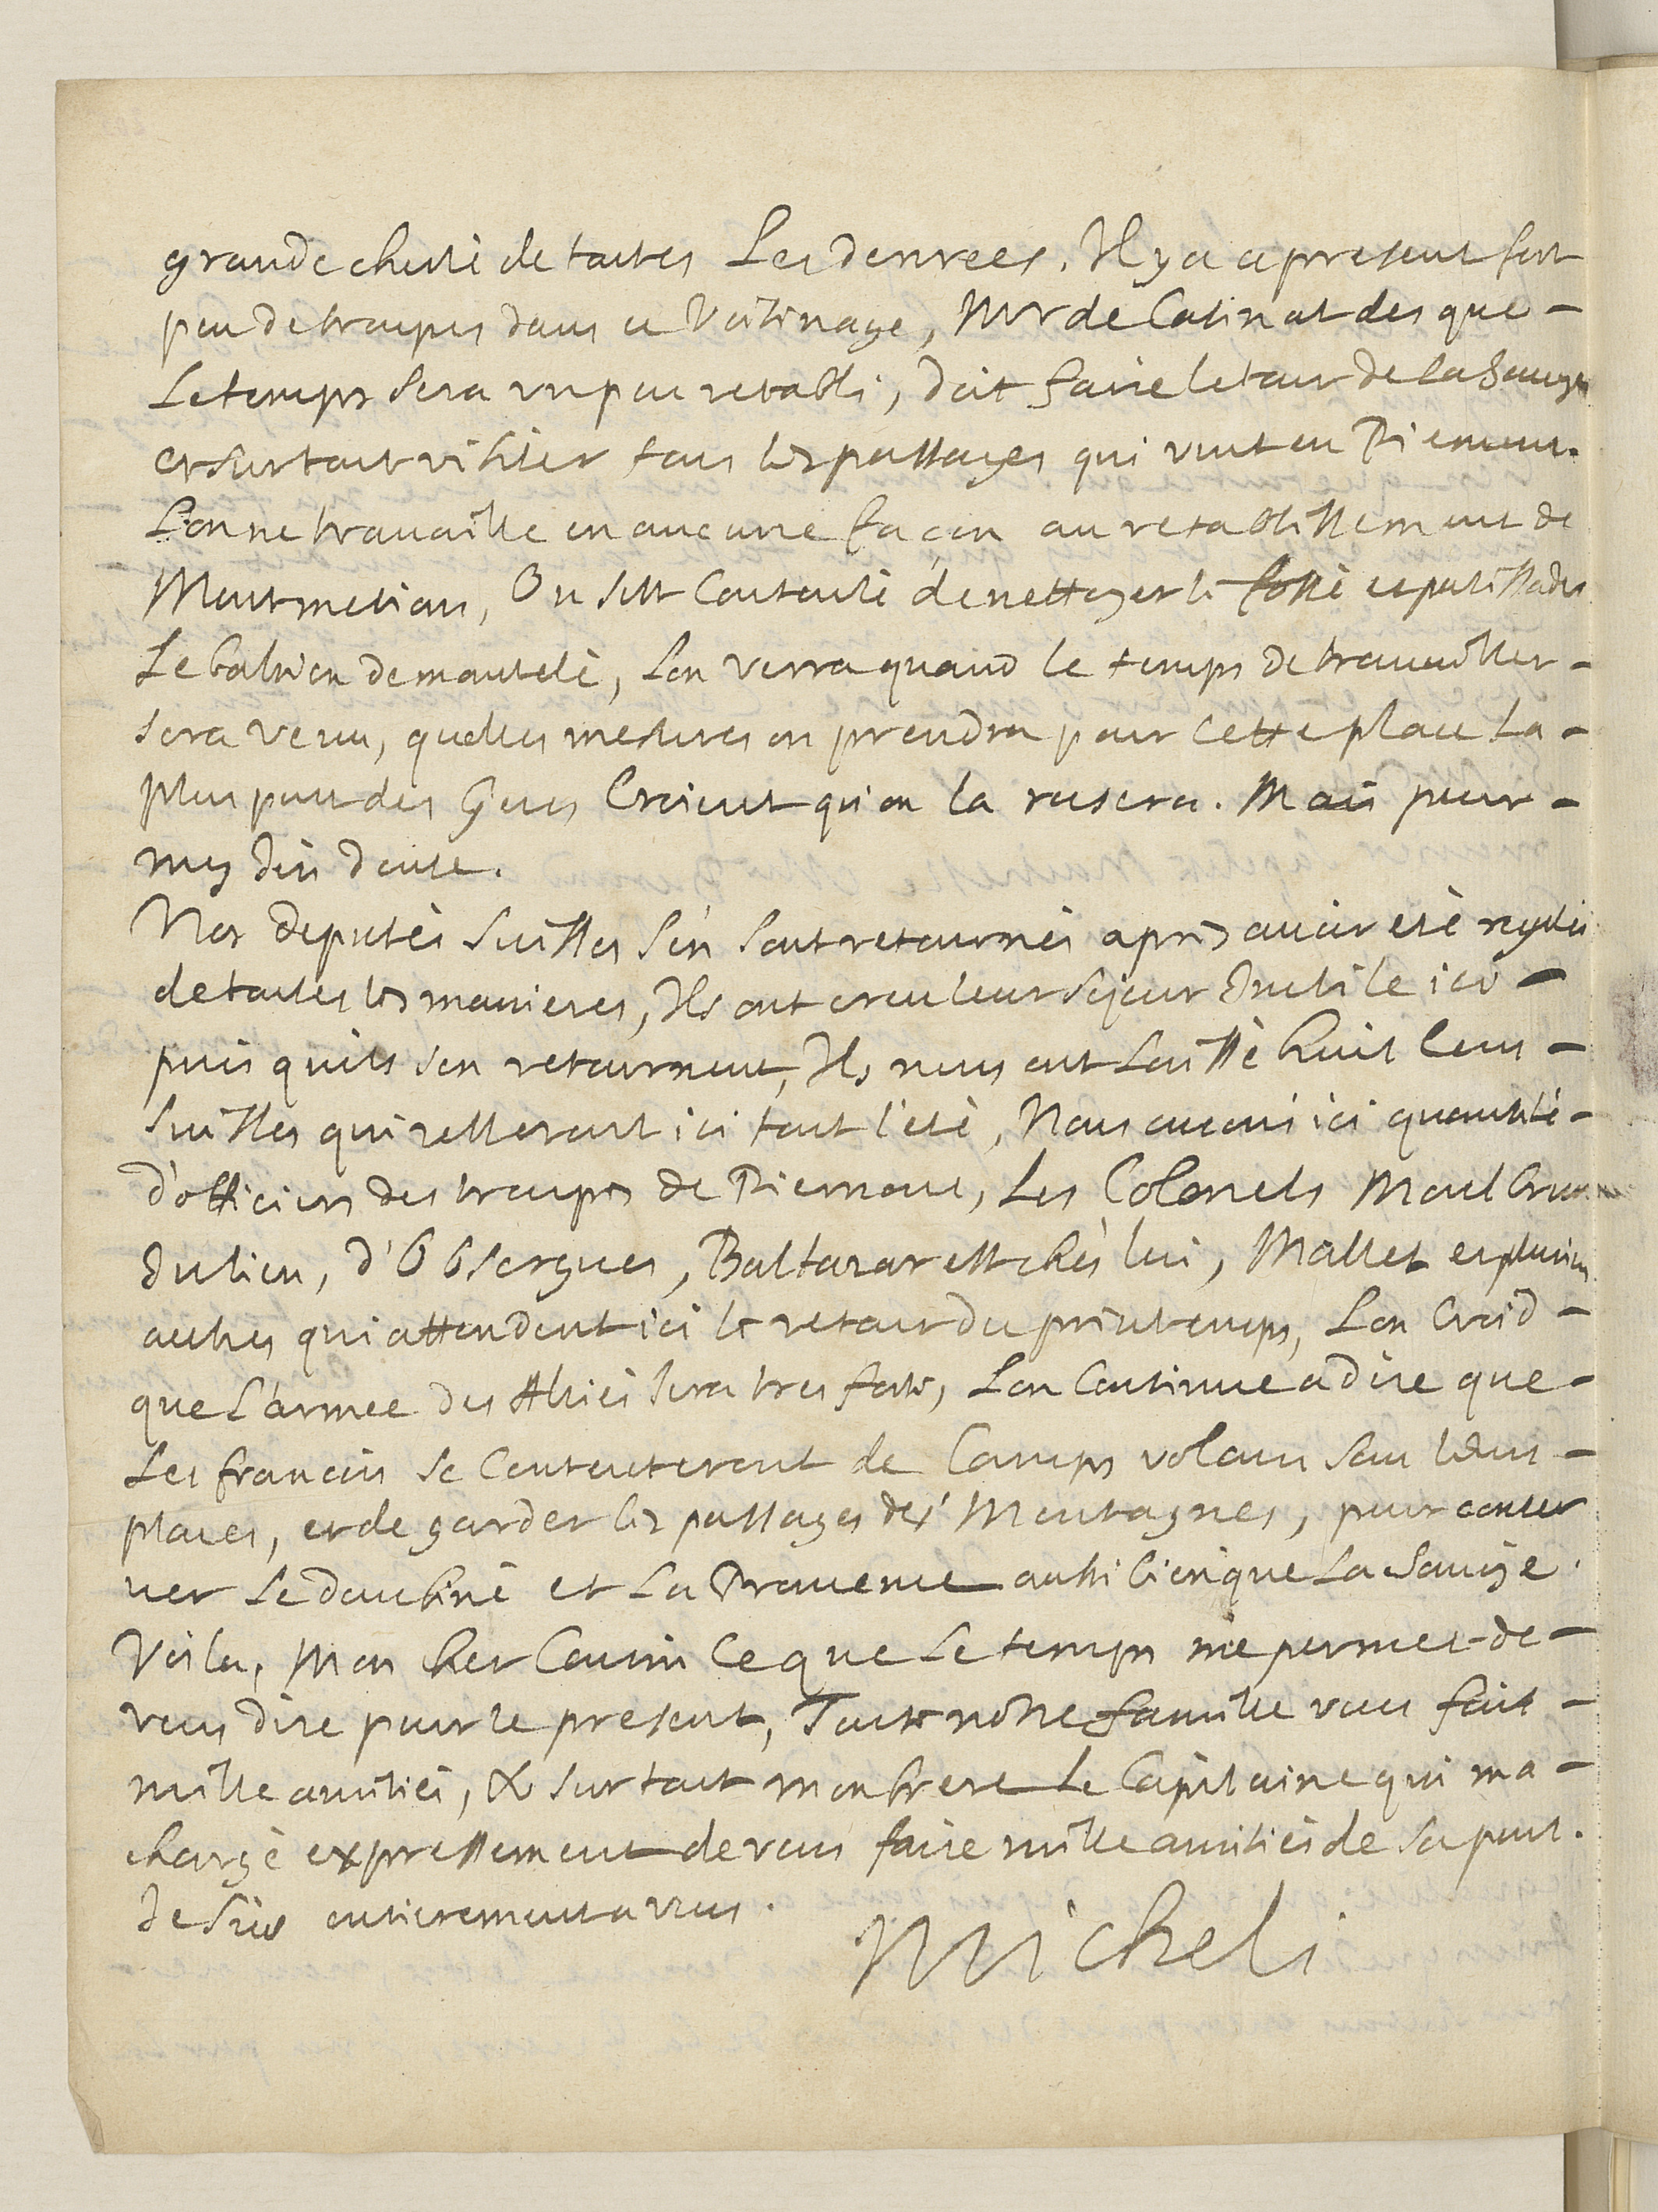 grande cherté de toutes Les denrees. Il y a a present fort
peu de troupes dans ce Voisinage, Mr de Catinat des que -
Le temps sera un peu retabli, doit faire le tour de la Sauoye
et surtout visiter tous les passages qui vont en Piemont.
L'on ne trauaille en aucune façon au retablissement de
Montmelian, On s'est Contenté de nettoyer le fossé et palissader
Le bastion demantelé, Lon verra quand le temps de trauailler -
sera venu, quelles mesures on prendra pour cette place La -
plus part des Gens Croient qu'on la rasera. Mais pour -
moy J'en doute.
Nos deputés Suisses s'en sont retournés après auoir eté regalés
de toutes les manieres, Ils ont creu leur sejour Inutile ici -
puis quils s'en retournent, Ils nous ont Laissé huit Cens -
Suisses qui resteront ici tout l'eté, Nous auons ici quantité -
d'officiers des troupes de Piemont, Les Colonels
Julien, d'Obsergues, Baltazar est chés lui, Mallet et plusieurs
autres qui attendent ici le retour du printemps, Lon Croid -
que L'armee des Alliés sera tres forte, Lon Continue a dire que -
Les francois se Contenteront de Camps volans sous leurs -
places, et de garder les passages des Montagnes, pour conser
uer Le dauphiné et La Prouence aussi bien que La Sauoye.
Voila, Mon cher Cousin Ce que Le temps me permet de -
vous dire pour le present, Toute nostre famille vous fait -
mille amitiés, & sur tout mon frere Le Capitaine qui ma -
chargé expressement de vous faire mille amitiés de sa part.
Je suis entierement a vous.
Micheli